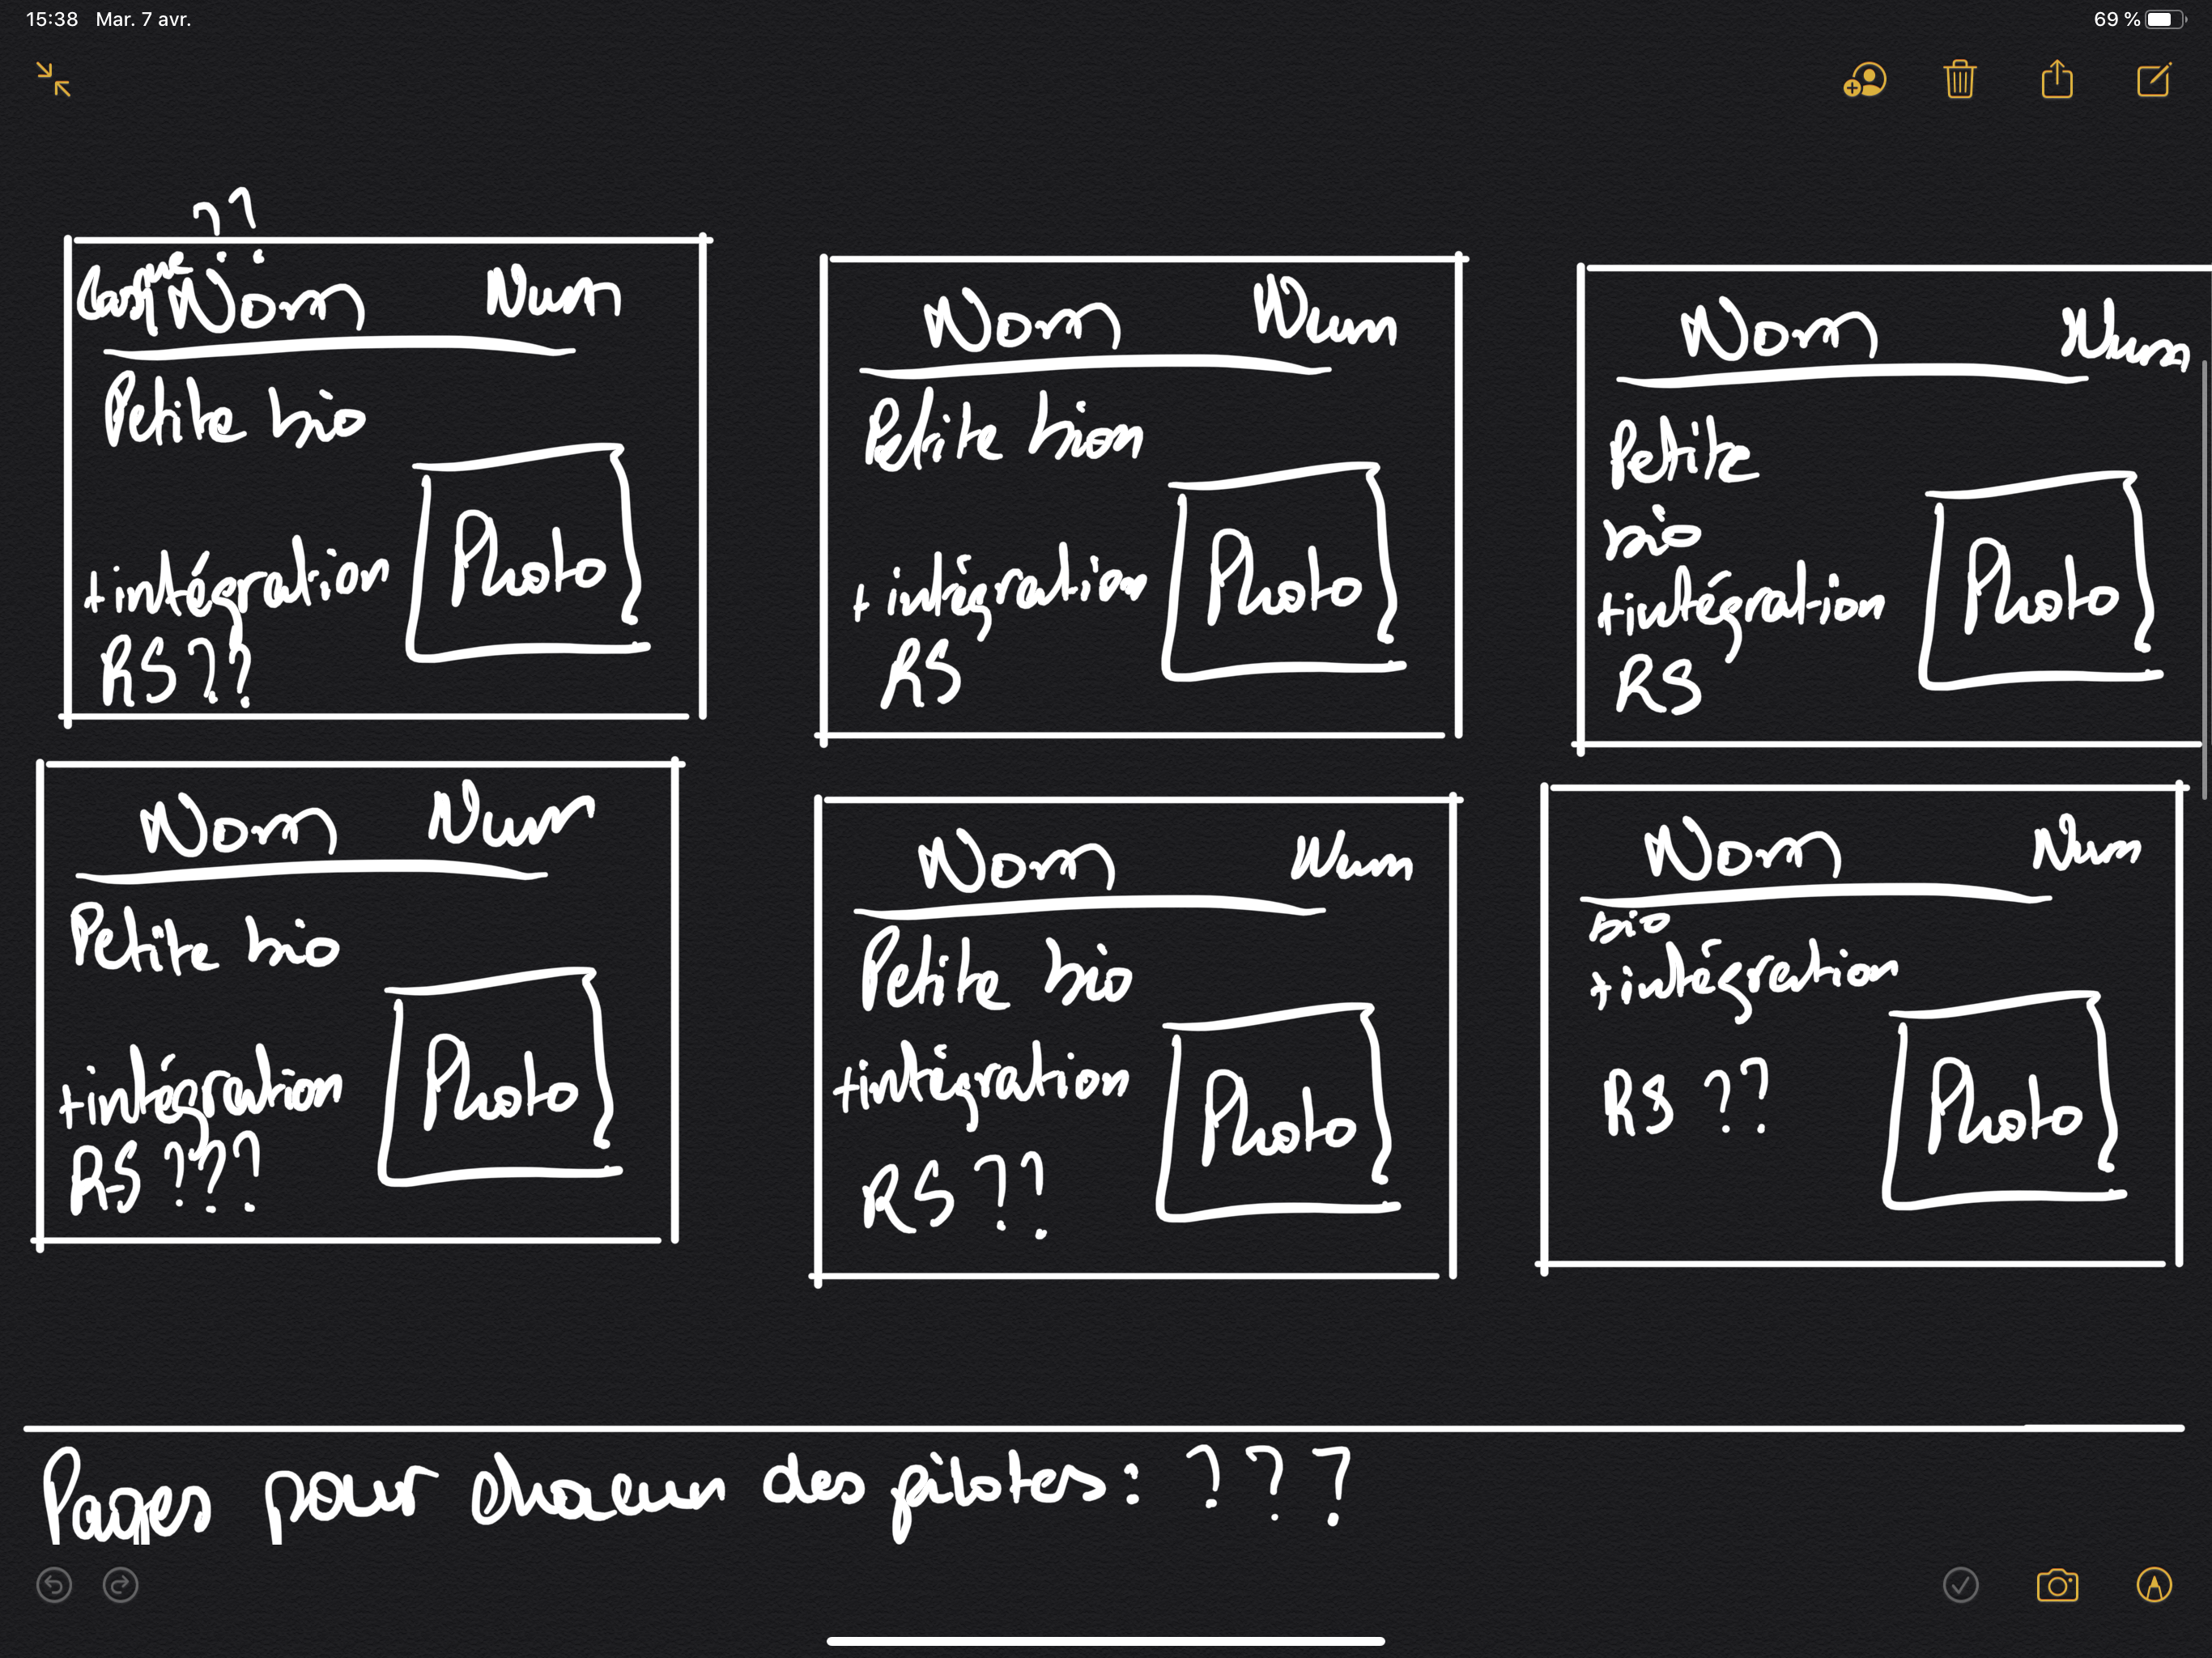 15:38 Mar. 7 avr. 69 %
??
Casque Nom Num
Petite bio
Photo
+ intégration
RS ??
Nom Num
Petite bion
Photo
+ intégration
RS
Nom Num
Petite
bio
Photo
+ intégration
RS
Nom Num
Petite bio
Photo
+ intégration
RS ???
Nom Num
Petite bio
+ intégration
Photo
RS ??
Nom Num
bio
+ intégration
RS ??
Photo
Pages pour chacun des pilotes : ???